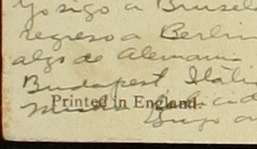 Yo sigo a Brusel
regreso a Berlin
algo de Alemania
Budapest Itali
Printed in England.